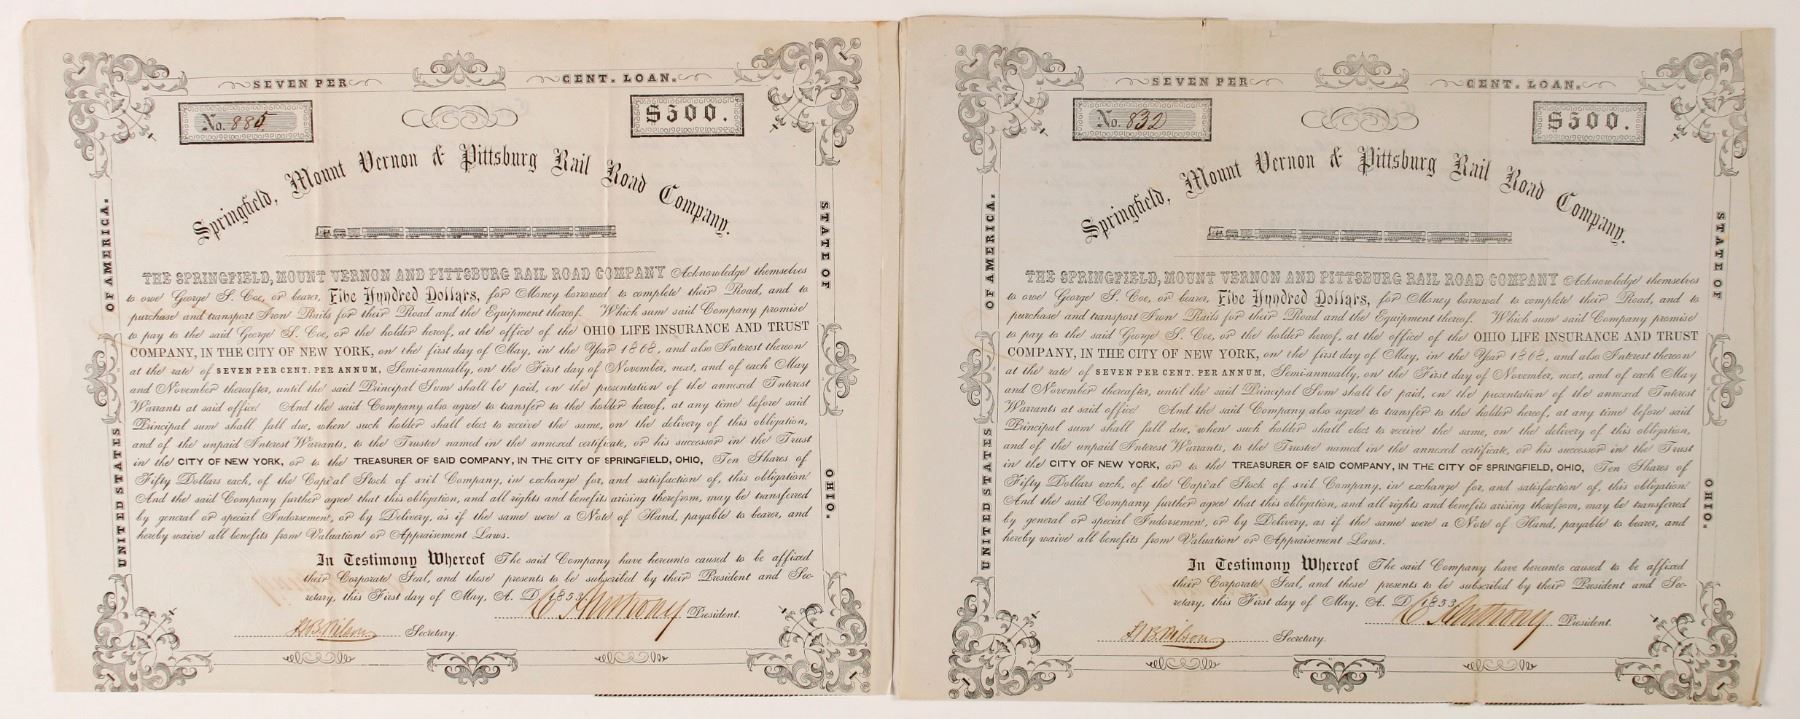 SEVEN PER CENT. LOAN.
No. 885.
$500.
Springfield, Mount Vernon & Pittsburg Rail Road Company.
OF AMERICA.
STATE OF
UNITED STATES
OHIO.
THE SPRINGFIELD, MOUNT VERNON AND PITTSBURG RAIL ROAD COMPANY Acknowledge themselves
to owe George S. Coe, or bearer, Five Hundred Dollars, for Money borrowed to complete their Road, and to
purchase and transport Iron Rails for their Road and the Equipment thereof. Which sum said Company promise
to pay to the said George S. Coe, or the holder hereof, at the office of the OHIO LIFE INSURANCE AND TRUST
COMPANY, IN THE CITY OF NEW YORK, on the first day of May, in the Year 1868, and also Interest thereon
at the rate of SEVEN PER CENT. PER ANNUM, Semi-annually, on the First day of November, next, and of each May
and November thereafter, until the said Principal Sum shall be paid, on the presentation of the annexed Interest
Warrants at said office And the said Company also agree to transfer to the holder hereof, at any time before said
Principal sum shall fall due, when such holder shall elect to receive the same, on the delivery of this obligation,
and of the unpaid Interest Warrants, to the Trustee named in the annexed certificate, or his successor in the Trust
in the CITY OF NEW YORK, or to the TREASURER OF SAID COMPANY, IN THE CITY OF SPRINGFIELD, OHIO, Ten Shares of
Fifty Dollars each, of the Capital Stock of said Company, in exchange for, and satisfaction of, this obligation
And the said Company further agree that this obligation, and all rights and benefits arising therefrom, may be transferred
by general or special Indorsement, or by Delivery, as if the same were a Note of Hand, payable to bearer, and
hereby waive all benefits from Valuation or Appraisement Laws.
In Testimony Whereof The said Company have hereunto caused to be affixed
their Corporate Seal, and these presents to be subscribed by their President and Sec-
retary, this First day of May, A. D. 1853.
C Anthony President.
Wilson Secretary.
SEVEN PER CENT. LOAN.
No. 832
$500.
Springfield, Mount Vernon & Pittsburg Rail Road Company.
OF AMERICA.
STATE OF
UNITED STATES
OHIO.
THE SPRINGFIELD, MOUNT VERNON AND PITTSBURG RAIL ROAD COMPANY Acknowledge themselves
to owe George S. Coe, or bearer, Five Hundred Dollars, for Money borrowed to complete their Road, and to
purchase and transport Iron Rails for their Road and the Equipment thereof. Which sum said Company promise
to pay to the said George S. Coe, or the holder hereof, at the office of the OHIO LIFE INSURANCE AND TRUST
COMPANY, IN THE CITY OF NEW YORK, on the first day of May, in the Year 1868, and also Interest thereon
at the rate of SEVEN PER CENT. PER ANNUM, Semi-annually, on the First day of November, next, and of each May
and November thereafter, until the said Principal Sum shall be paid, on the presentation of the annexed Interest
Warrants at said office And the said Company also agree to transfer to the holder hereof, at any time before said
Principal sum shall fall due, when such holder shall elect to receive the same, on the delivery of this obligation,
and of the unpaid Interest Warrants, to the Trustee named in the annexed certificate, or his successor in the Trust
in the CITY OF NEW YORK, or to the TREASURER OF SAID COMPANY, IN THE CITY OF SPRINGFIELD, OHIO, Ten Shares of
Fifty Dollars each, of the Capital Stock of said Company, in exchange for, and satisfaction of, this obligation
And the said Company further agree that this obligation, and all rights and benefits arising therefrom, may be transferred
by general or special Indorsement, or by Delivery, as if the same were a Note of Hand, payable to bearer, and
hereby waive all benefits from Valuation or Appraisement Laws.
In Testimony Whereof The said Company have hereunto caused to be affixed
their Corporate Seal, and these presents to be subscribed by their President and Sec-
retary, this First day of May, A. D. 1853.
C Anthony President.
Wilson Secretary.